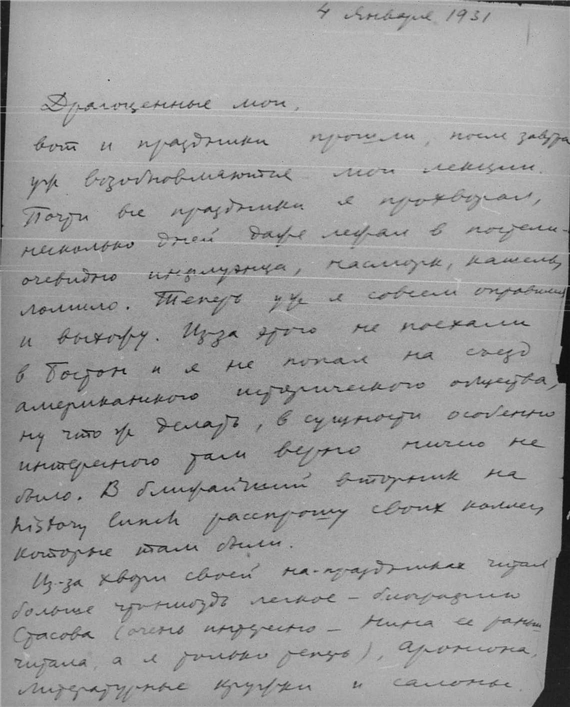 4 января 1931
Драгоценные мои,
вот и праздники прошли, после завтра
уж возобновляются мои лекции.
Почти все праздники я прохворал,
несколько дней даже лежал в постели –
очевидно инфлуэнца, насморк, кашель,
ломило. Теперь уж я совсем оправился
и выхожу. Из-за этого не поехали
в Бостон и я не попал на съезд
американского исторического общества,
ну что ж делать, в сущности особенно
интересного там верно ничего не
было. В ближайший вторник на
history lunch расспрошу своих коллег,
которые там были.
Из-за хвори своей на праздниках читал
больше что-нибудь легкое – биографию
Стасова (очень интересно – Нина ее раньше
читала, а я только теперь), Аронсона,
литературные кружки и салоны.